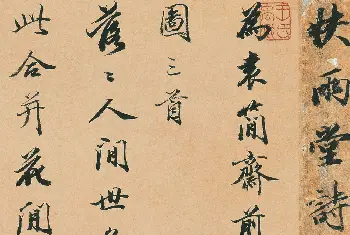 快雨堂詩
為袁簡齋前
圖三首
落〻人間世
此合并花間